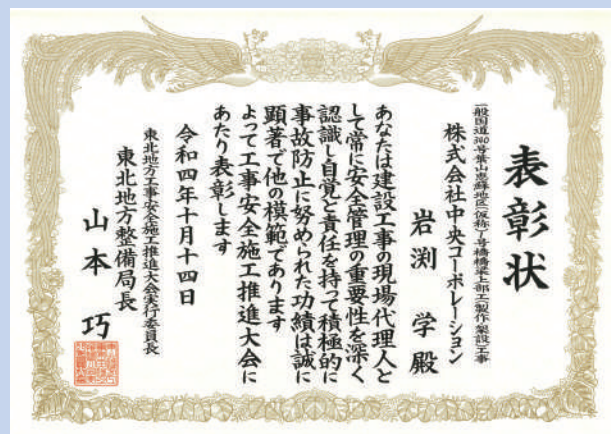 表彰状
一般国道340号葉山恵蘇地区(仮称)1号橋橋梁上部工(製作架設)工事
株式会社中央コーポレーション
岩渕 学殿
あなたは建設工事の現場代理人と
して常に安全管理の重要性を深く
認識し自覚と責任を持って積極的に
事故防止に努められた功績は誠に
顕著で他の模範であります
よって工事安全施工推進大会に
あたり表彰します
令和四年十月十四日
東北地方工事安全施工推進大会実行委員長
東北地方整備局長
山本 巧